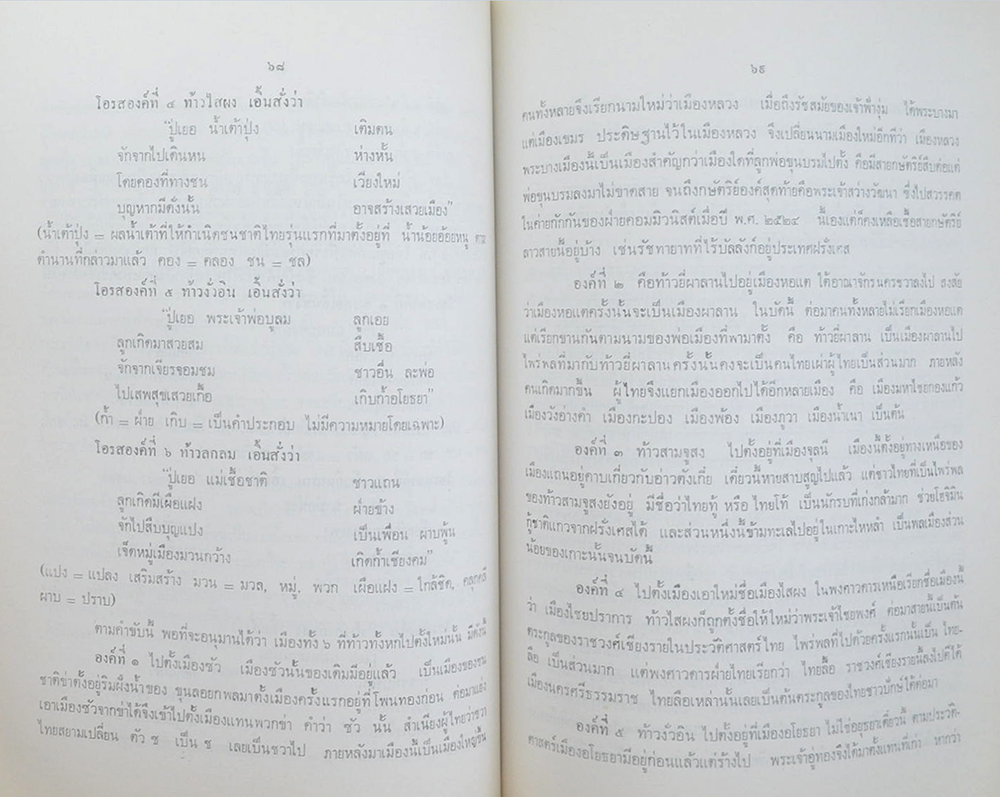 ๖๘
โอรสองค์ที่ ๔ ท้าวไสผง เอิ้นสั่งว่า
"ปู่เยอ น้ำเต้าปุ่ง เดิมตน
จักจากไปเดินหน ห่างหั้น
โดยคองที่ทางชน เวียงใหม่
บุญหากมีดั่งนั้น อาจสร้างเสวยเมือง"
(น้ำเต้าปุ่ง = ผลน้ำเต้าที่ให้กำเนิดชนชาติไทยรุ่นแรกที่มาตั้งอยู่ที่ น้ำน้อยอ้อยหนู ตาม
ตำนานที่กล่าวมาแล้ว คอง = คลอง ชน = ชล)
โอรสองค์ที่ ๕ ท้าวงั่วอิน เอิ้นสั่งว่า
"ปู่เยอ พระเจ้าพ่อบูลม ลูกเอย
ลูกเกิดมาสวยสม สืบเชื้อ
จักจากเจียรจอมชม ชาวอื่น ละพ่อ
ไปเสพสุขเสวยเกื้อ เกิบก้ำอโยธยา"
(ก้ำ = ฝ่าย เกิบ = เป็นคำประกอบ ไม่มีความหมายโดยเฉพาะ)
โอรสองค์ที่ ๖ ท้าวลกลม เอิ้นสั่งว่า
"ปู่เยอ แม่เชื้อชาติ ชาวแถน
ลูกเกิดมีเผือแฝง ฝ่ายข้าง
จักไปสืบบุญแปง เป็นเพื่อน ผาบพุ้น
เจ็ดหมู่เมืองมวนกว้าง เกิดก้ำเชียงคม"
(แปง = แปลง เสริมสร้าง มวน = มวล, หมู่, พวก เผือแฝง = ใกล้ชิด, คลุกคลี
ผาบ = ปราบ)
ตามคำขับนี้ พอที่จะอนุมานได้ว่า เมืองทั้ง ๖ ที่ท้าวทั้งหกไปตั้งใหม่นั้น มีดังนี้
องค์ที่ ๑ ไปตั้งเมืองซัว เมืองซัวนั้นของเดิมมีอยู่แล้ว เป็นเมืองของชน
ชาติข่าตั้งอยู่ริมฝั่งน้ำของ ขุนลอยกพลมาตั้งเมืองครั้งแรกอยู่ที่โพนทองก่อน ต่อมาแย่ง
เอาเมืองซัวจากข่าได้จึงเข้าไปตั้งเมืองแทนพวกข่า คำว่า ซัว นั้น สำเนียงผู้ไทยว่าซวา
ไทยสยามเปลี่ยน ตัว ซ เป็น ช เลยเป็นชวาไป ภายหลังมาเมืองนี้เป็นเมืองใหญ่ขึ้น
๖๙
คนทั้งหลายจึงเรียกนามใหม่ว่าเมืองหลวง เมื่อถึงรัชสมัยของเจ้าฟ้างุ่ม ได้พระบางมา
แต่เมืองเขมร ประดิษฐานไว้ในเมืองหลวง จึงเปลี่ยนนามเมืองใหม่อีกทีว่า เมืองหลวง
พระบางเมืองนี้เป็นเมืองสำคัญกว่าเมืองใดที่ลูกพ่อขุนบรมไปตั้ง คือมีสายกษัตริย์สืบต่อแต่
พ่อขุนบรมลงมาไม่ขาดสาย จนถึงกษัตริย์องค์สุดท้ายคือพระเจ้าสว่างวัฒนา ซึ่งไปสวรรคต
ในค่ายกักกันของฝ่ายคอมมิวนิสต์เมื่อปี พ.ศ. ๒๕๒๔ นี้เองแต่ก็คงเหลือเชื้อสายกษัตริย์
ลาวสายนี้อยู่บ้าง เช่นรัชทายาทที่ไร้บัลลังก์อยู่ประเทศฝรั่งเศส
องค์ที่ ๒ คือท้าวยี่ผาลานไปอยู่เมืองหอแต ได้อาณาจักรนครชวาลงไป สงสัย
ว่าเมืองหอแตครั้งนั้นจะเป็นเมืองผาลาน ในบัดนี้ ต่อมาคนทั้งหลายไม่เรียกเมืองหอแต
แต่เรียกขานกันตามนามของพ่อเมืองที่พามาตั้ง คือ ท้าวยี่ผาลาน เป็นเมืองผาลานไป
ไพร่พลที่มากับท้าวยี่ผาลานครั้งนั้นคงจะเป็นคนไทยเผ่าผู้ไทยเป็นส่วนมาก ภายหลัง
คนเกิดมากขึ้น ผู้ไทยจึงแยกเมืองออกไปได้อีกหลายเมือง คือ เมืองมหาไชยกองแก้ว
เมืองวังอ่างคำ เมืองกะปอง เมืองพ้อง เมืองภูวา เมืองน้ำเนา เป็นต้น
องค์ที่ ๓ ท้าวสามจูสง ไปตั้งอยู่ที่เมืองจุลนี เมืองนี้ตั้งอยู่ทางเหนือของ
เมืองแถนอยู่คาบเกี่ยวกับอ่าวตังเกี๋ย เดี๋ยวนี้หายสาบสูญไปแล้ว แต่ชาวไทยที่เป็นไพร่พล
ของท้าวสามจูสงยังอยู่ มีชื่อว่าไทยทู้ หรือ ไทยโท้ เป็นนักรบที่เก่งกล้ามาก ช่วยโฮจิมิน
กู้ชาติแกวจากฝรั่งเศสได้ และส่วนหนึ่งนี้ข้ามทะเลไปอยู่ในเกาะไหหลำ เป็นพลเมืองส่วน
น้อยของเกาะนั้นจนบัดนี้
องค์ที่ ๔ ไปตั้งเมืองเอาใหม่ชื่อเมืองไสผง ในพงศาวดารเหนือเรียกชื่อเมืองนี้
ว่า เมืองไชยปราการ ท้าวไสผงก็ถูกตั้งชื่อให้ใหม่ว่าพระเจ้าไชยพงศ์ ต่อมาสายนี้เป็นต้น
ตระกูลของราชวงศ์เชียงรายในประวัติศาสตร์ไทย ไพร่พลที่ไปด้วยครั้งแรกนั้นเป็น ไทย-
ลือ เป็นส่วนมาก แต่พงศาวดารฝ่ายไทยเรียกว่า ไทยลื้อ ราชวงศ์เชียงรายนี้ลงไปตีได้
เมืองนครศรีธรรมราช ไทยลือเหล่านั้นเลยเป็นต้นตระกูลของไทยชาวปักษ์ใต้ต่อมา
องค์ที่ ๕ ท้าวงั่วอิน ไปตั้งอยู่ที่เมืองอโยธยา ไม่ใช่อยุธยาเดี๋ยวนี้ ตามประวัติ-
ศาสตร์เมืองอโยธยามีอยู่ก่อนแล้วแต่ร้างไป พระเจ้าอู่ทองจึงได้มาตั้งแทนที่เก่า หากว่า